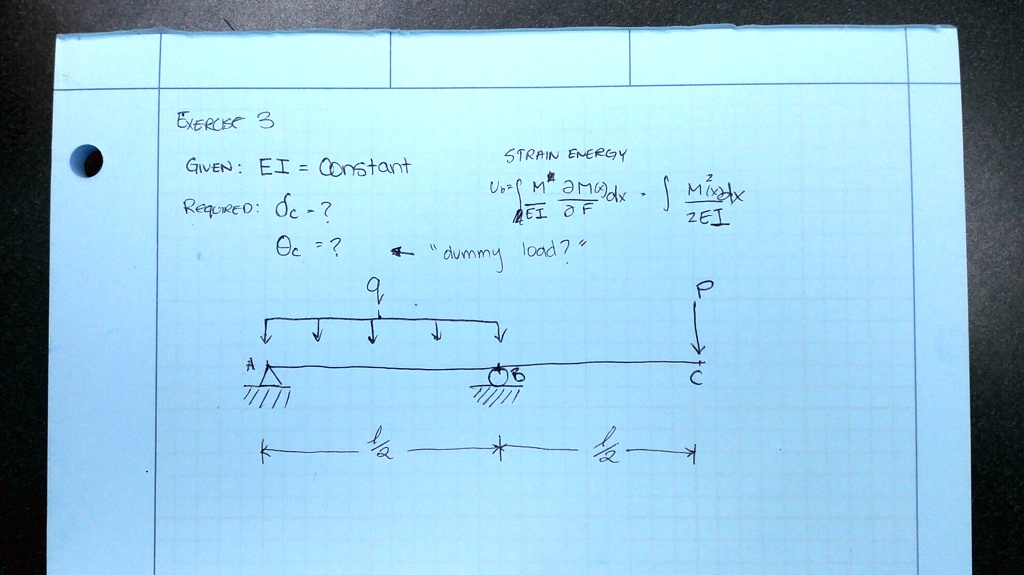 EXERCISE 3
GIVEN: EI = Constant
REQUIRED: δc = ?
θc = ? ← "dummy load?"
STRAIN ENERGY
Ub = ∫ M/EI ∂M(x)/∂F dx = ∫ M²(x)dx/2EI
q
P
A
B
C
l/2
l/2